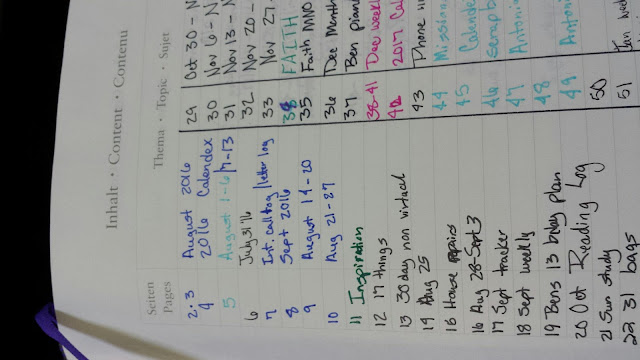 Inhalt · Content · Contenu
Seiten
Pages
Thema · Topic · Sujet
2·3 August 2016
4 2016 Calendex
5 August 1-6/7-13
6 July 31 16
7 Int. call log/letter log
8 Sept 2016
9 August 14-20
10 Aug 21-27
11 Inspiration
12 17 things
13 30 day non virtual
14 Aug 25
15 House repairs
16 Aug 28-Sept 3
17 Sept tracker
18 Sept weekly
19 Bens 13 bday plan
20 Oct Reading Log
21 Sun study
22 31 bags
29 Oct 30 - N
30 Nov 6 - N
31 Nov 13 - N
32 Nov 20 -
33 Nov 27
34 FAITH
35 Faith
36 Dec Month
37 Ben piano
38-41 Dec weekl
42 2017 Cal
43 Phone
44 Mission
45 Calende
46 Scrapb
47 Antoni
48
49 Antoni
50
51 Jan